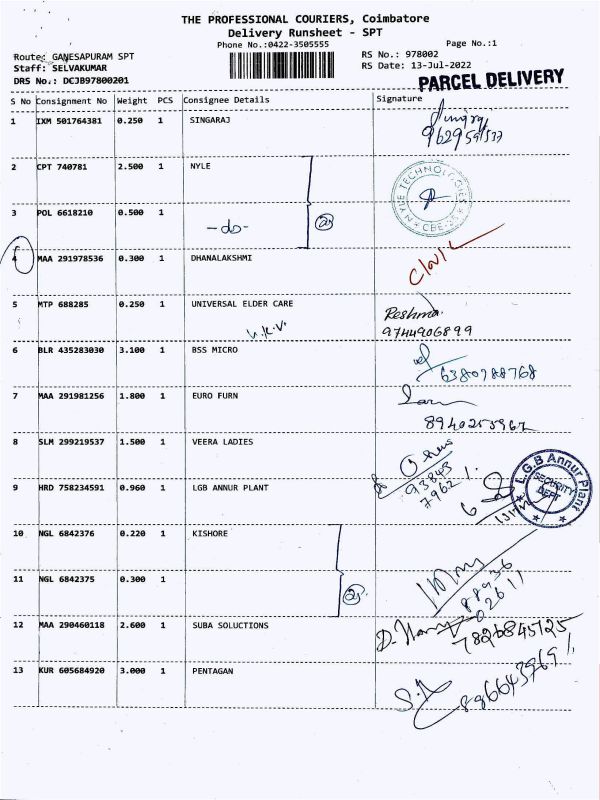 THE PROFESSIONAL COURIERS, Coimbatore
Delivery Runsheet - SPT
Phone No.:0422-3505555
Page No.:1
Route: GANESAPURAM SPT
RS No.: 978002
Staff: SELVAKUMAR
RS Date: 13-Jul-2022
DRS No.: DCJB97800201
PARCEL DELIVERY
S No Consignment No Weight PCS Consignee Details Signature
1 IXM 501764381 0.250 1 SINGARAJ
2 CPT 740781 2.500 1 NYLE
NYLE TECHNOLOGIES CBE-35
3 POL 6618210 0.500 1 -do- 2
4 MAA 291978536 0.300 1 DHANALAKSHMI
5 MTP 688285 0.250 1 UNIVERSAL ELDER CARE Reshma
9744906899
6 BLR 435283030 3.100 1 BSS MICRO
6380788768
7 MAA 291981256 1.800 1 EURO FURN
8940253962
8 SLM 299219537 1.500 1 VEERA LADIES
93843
79621
9 HRD 758234591 0.960 1 LGB ANNUR PLANT
L.G.B Annur Plant SECURITY DEPT
10 NGL 6842376 0.220 1 KISHORE
11 NGL 6842375 0.300 1 2
88936
02611
12 MAA 290460118 2.600 1 SUBA SOLUCTIONS
7826845125
13 KUR 605684920 3.000 1 PENTAGAN